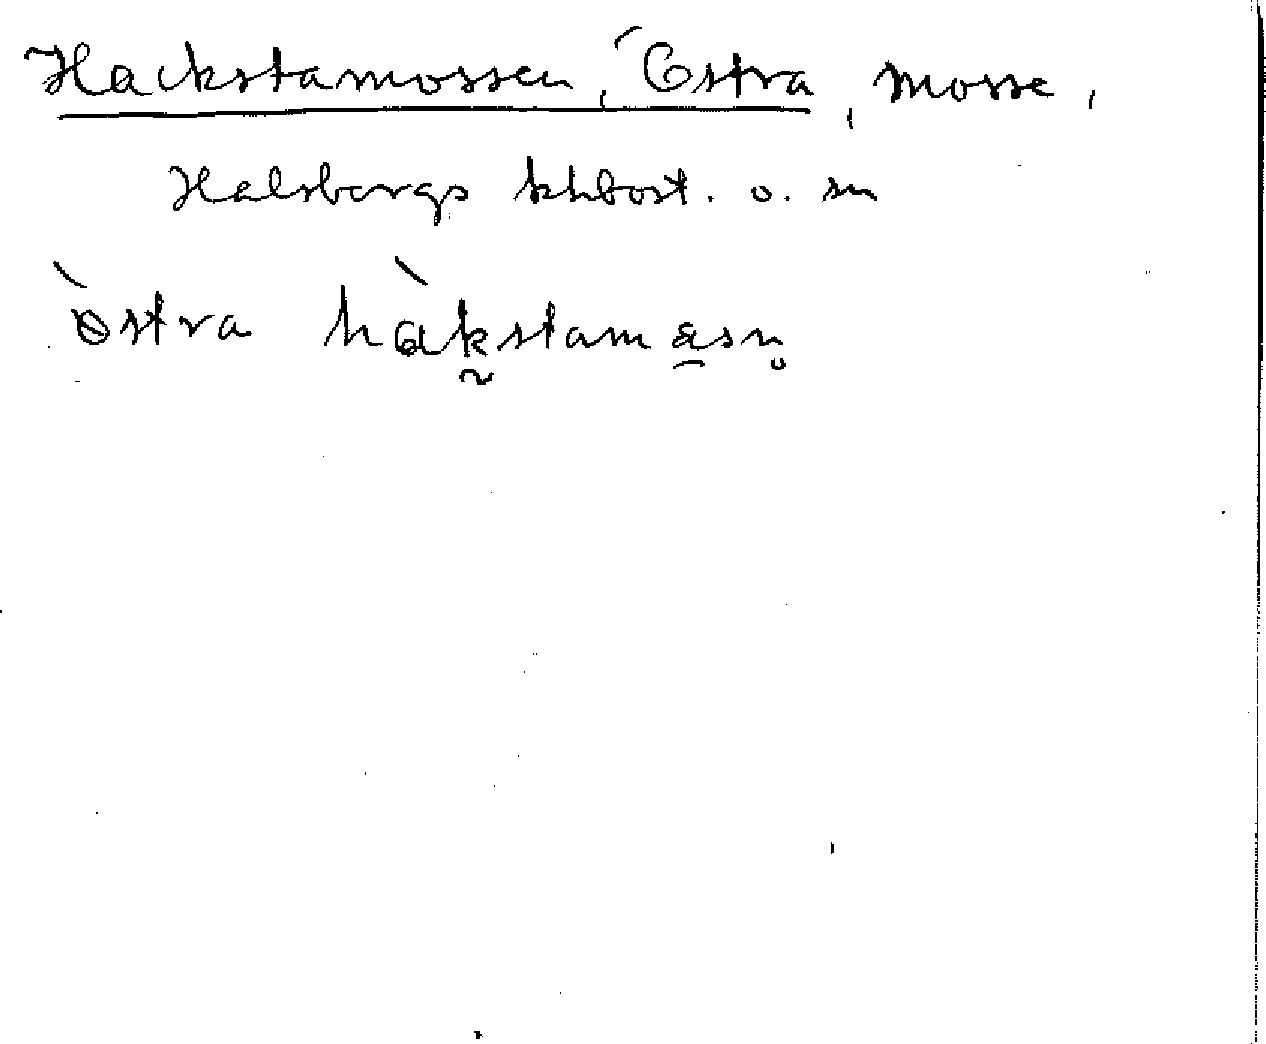 Hackstamossen, Östra, mosse,
Halsbergs khbost. o. sn
östra hakstamåsn